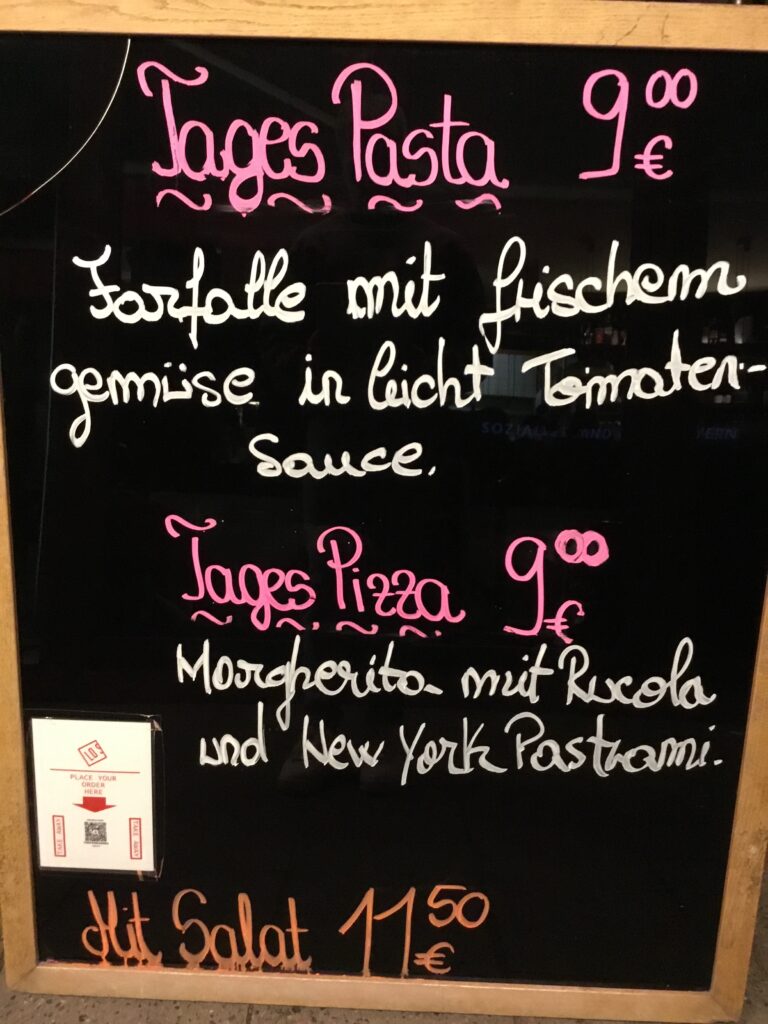 Tages Pasta 9 00 €
Farfalle mit frischem
gemüse in leicht Tomaten-
Sauce.
Tages Pizza 9 00 €
Margherita mit Rucola
und New York Pastrami.
LO
PLACE YOUR
ORDER
HERE
TAKE AWAY
TAKE AWAY
Mit Salat 11 50 €